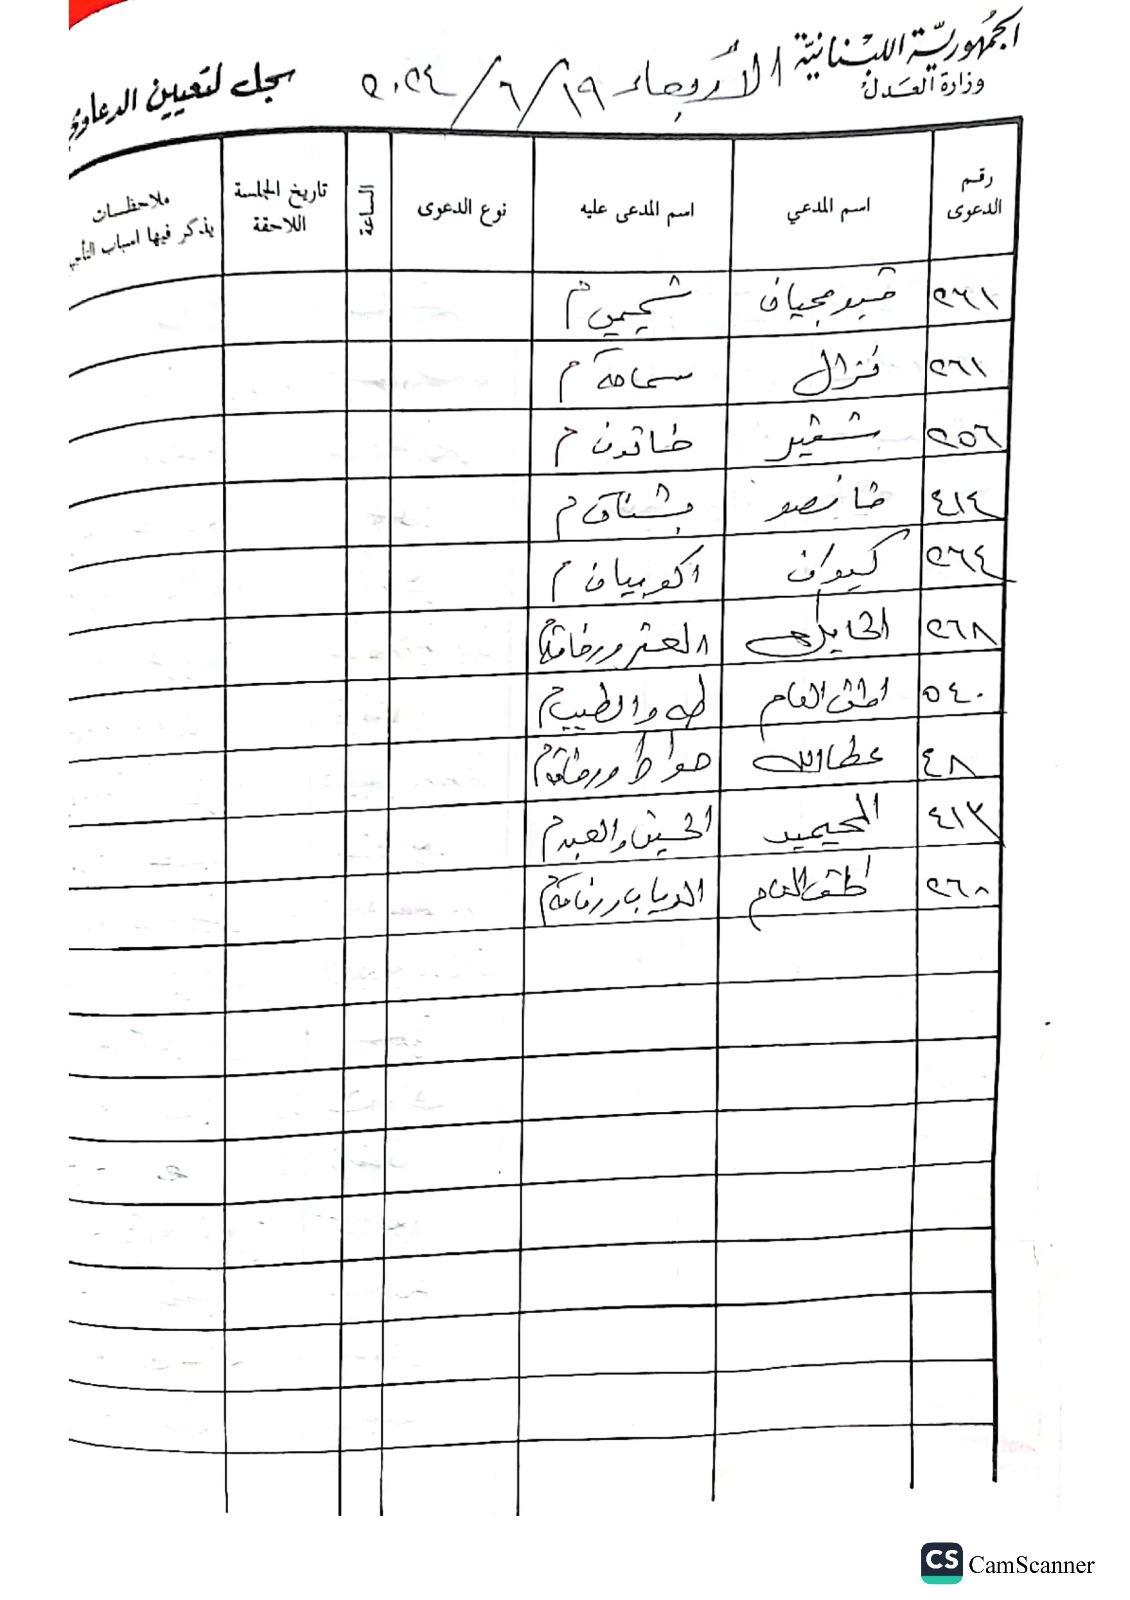 الجمهوريّة اللبنانيّة
وزارة العدل
الأربعاء ١٩/٦/٢٠٢٤
سجل لتعيين الدعاوى
رقم الدعوى	اسم المدعي	اسم المدعى عليه	نوع الدعوى	الساعة	تاريخ الجلسة اللاحقة	ملاحظات يذكر فيها اسباب التأجيـ
٢٦١	قيومجيان	شحيمي م
٢٦١	قزال	سماحة م
٢٥٦	شقير	خاتون م
٤١٤	خانصو	بشناق م
٢٦٤	كيوان	اكوبيان م
٢٦٨	الحايك	العتر ورفاقه م
٥٤٠	الحق العام	طه والطيب م
٤٨	عطالله	صواط ورفاقه م
٤١٣	المحيميد	الحسين والعبد م
٢٦٠	الحق العام	الدياب ورفاقه م
CS CamScanner